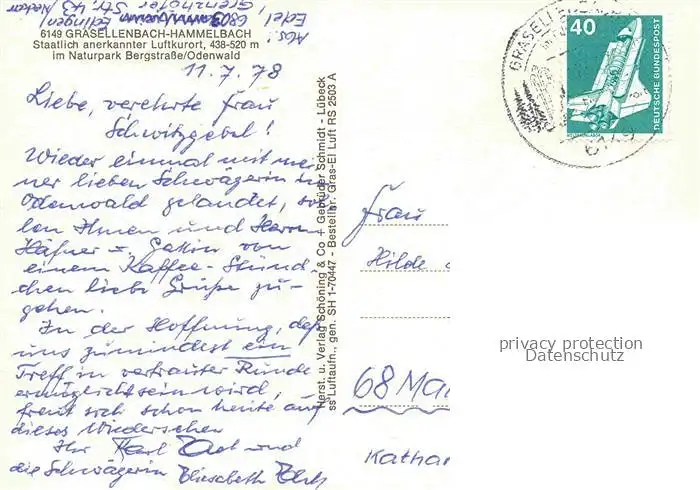 Abs:
6803 Edingen
6149 GRASELLENBACH-HAMMELBACH
Staatlich anerkannter Luftkurort, 438-520 m
im Naturpark Bergstraße/Odenwald
11.7.78
Liebe, verehrte Frau
Schwitzgebel!
Wieder einmal mit mei-
ner lieben Schwägerin im
Odenwald gelandet, sol-
len Ihnen und Herrn
Häfner + Gattin von
einem Kaffee-Stünd-
chen liebe Grüße zu-
gehen.
In der Hoffnung, daß
uns zumindest ein
Treff in vertrauter Runde
ermöglicht sein wird,
freut sich schon heute auf
dieses Wiedersehen
Ihr Karl und
die Schwägerin Elisabeth
Herst. u. Verlag Schöning & Co + Gebrüder Schmidt - Lübeck
ss Luftaufn., gen. SH 1-70447 - Bestellnr. Gras-El Luft RS 2503 A
40
DEUTSCHE BUNDESPOST
GRASELLENBACH
6149
Frau
Hilde
68 Ma
Kathar
privacy protection
Datenschutz